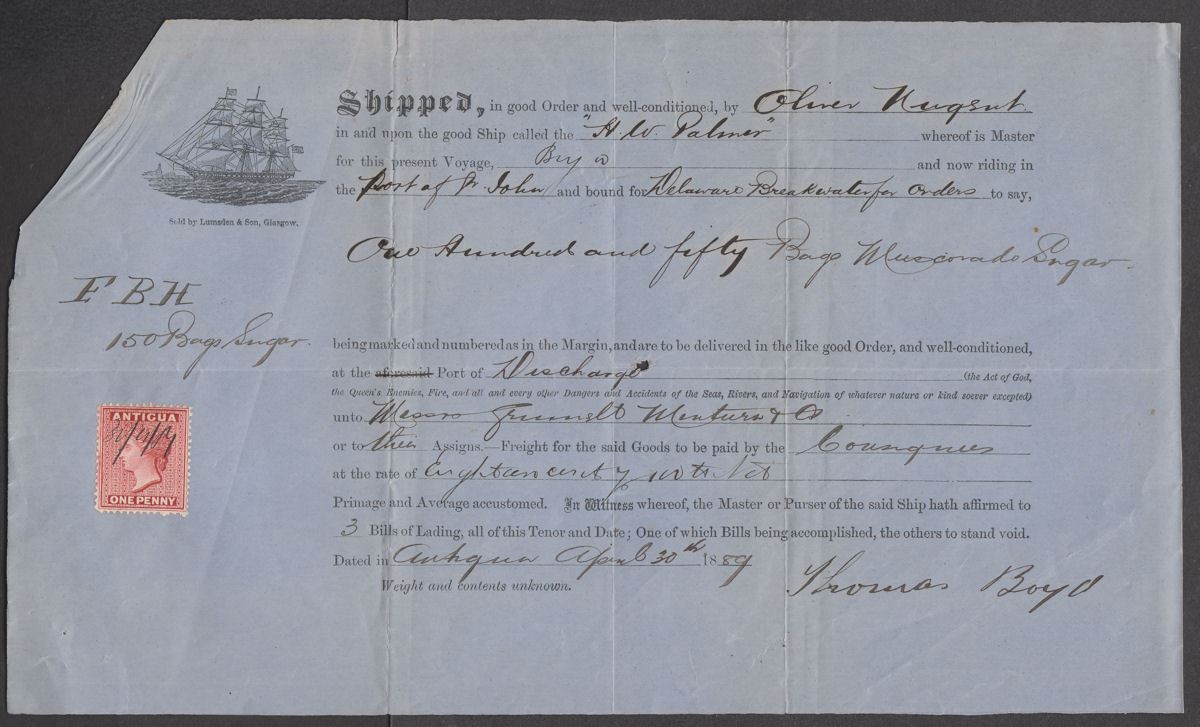 Shipped, in good Order and well-conditioned, by Oliver Nugent
in and upon the good Ship called the "H. W. Palmer" whereof is Master
for this present Voyage, Boyd and now riding in
the Port of St John and bound for Delaware Breakwater for orders to say,
Sold by Lumsden & Son, Glasgow.
One Hundred and fifty Bags Muscovado Sugar
F B H
150 Bags Sugar.
being marked and numbered as in the Margin, and are to be delivered in the like good Order, and well-conditioned,
at the aforesaid Port of Discharge (the Act of God,
the Queen's Enemies, Fire, and all and every other Dangers and Accidents of the Seas, Rivers, and Navigation of whatever nature or kind soever excepted)
unto Messrs & Co
or to their Assigns.—Freight for the said Goods to be paid by the Consignees
at the rate of Eighteen cents
Primage and Average accustomed. In Witness whereof, the Master or Purser of the said Ship hath affirmed to
3 Bills of Lading, all of this Tenor and Date; One of which Bills being accomplished, the others to stand void.
Dated in Antigua April 30th 1889
Weight and contents unknown.
Thomas Boyd
ANTIGUA
ONE PENNY